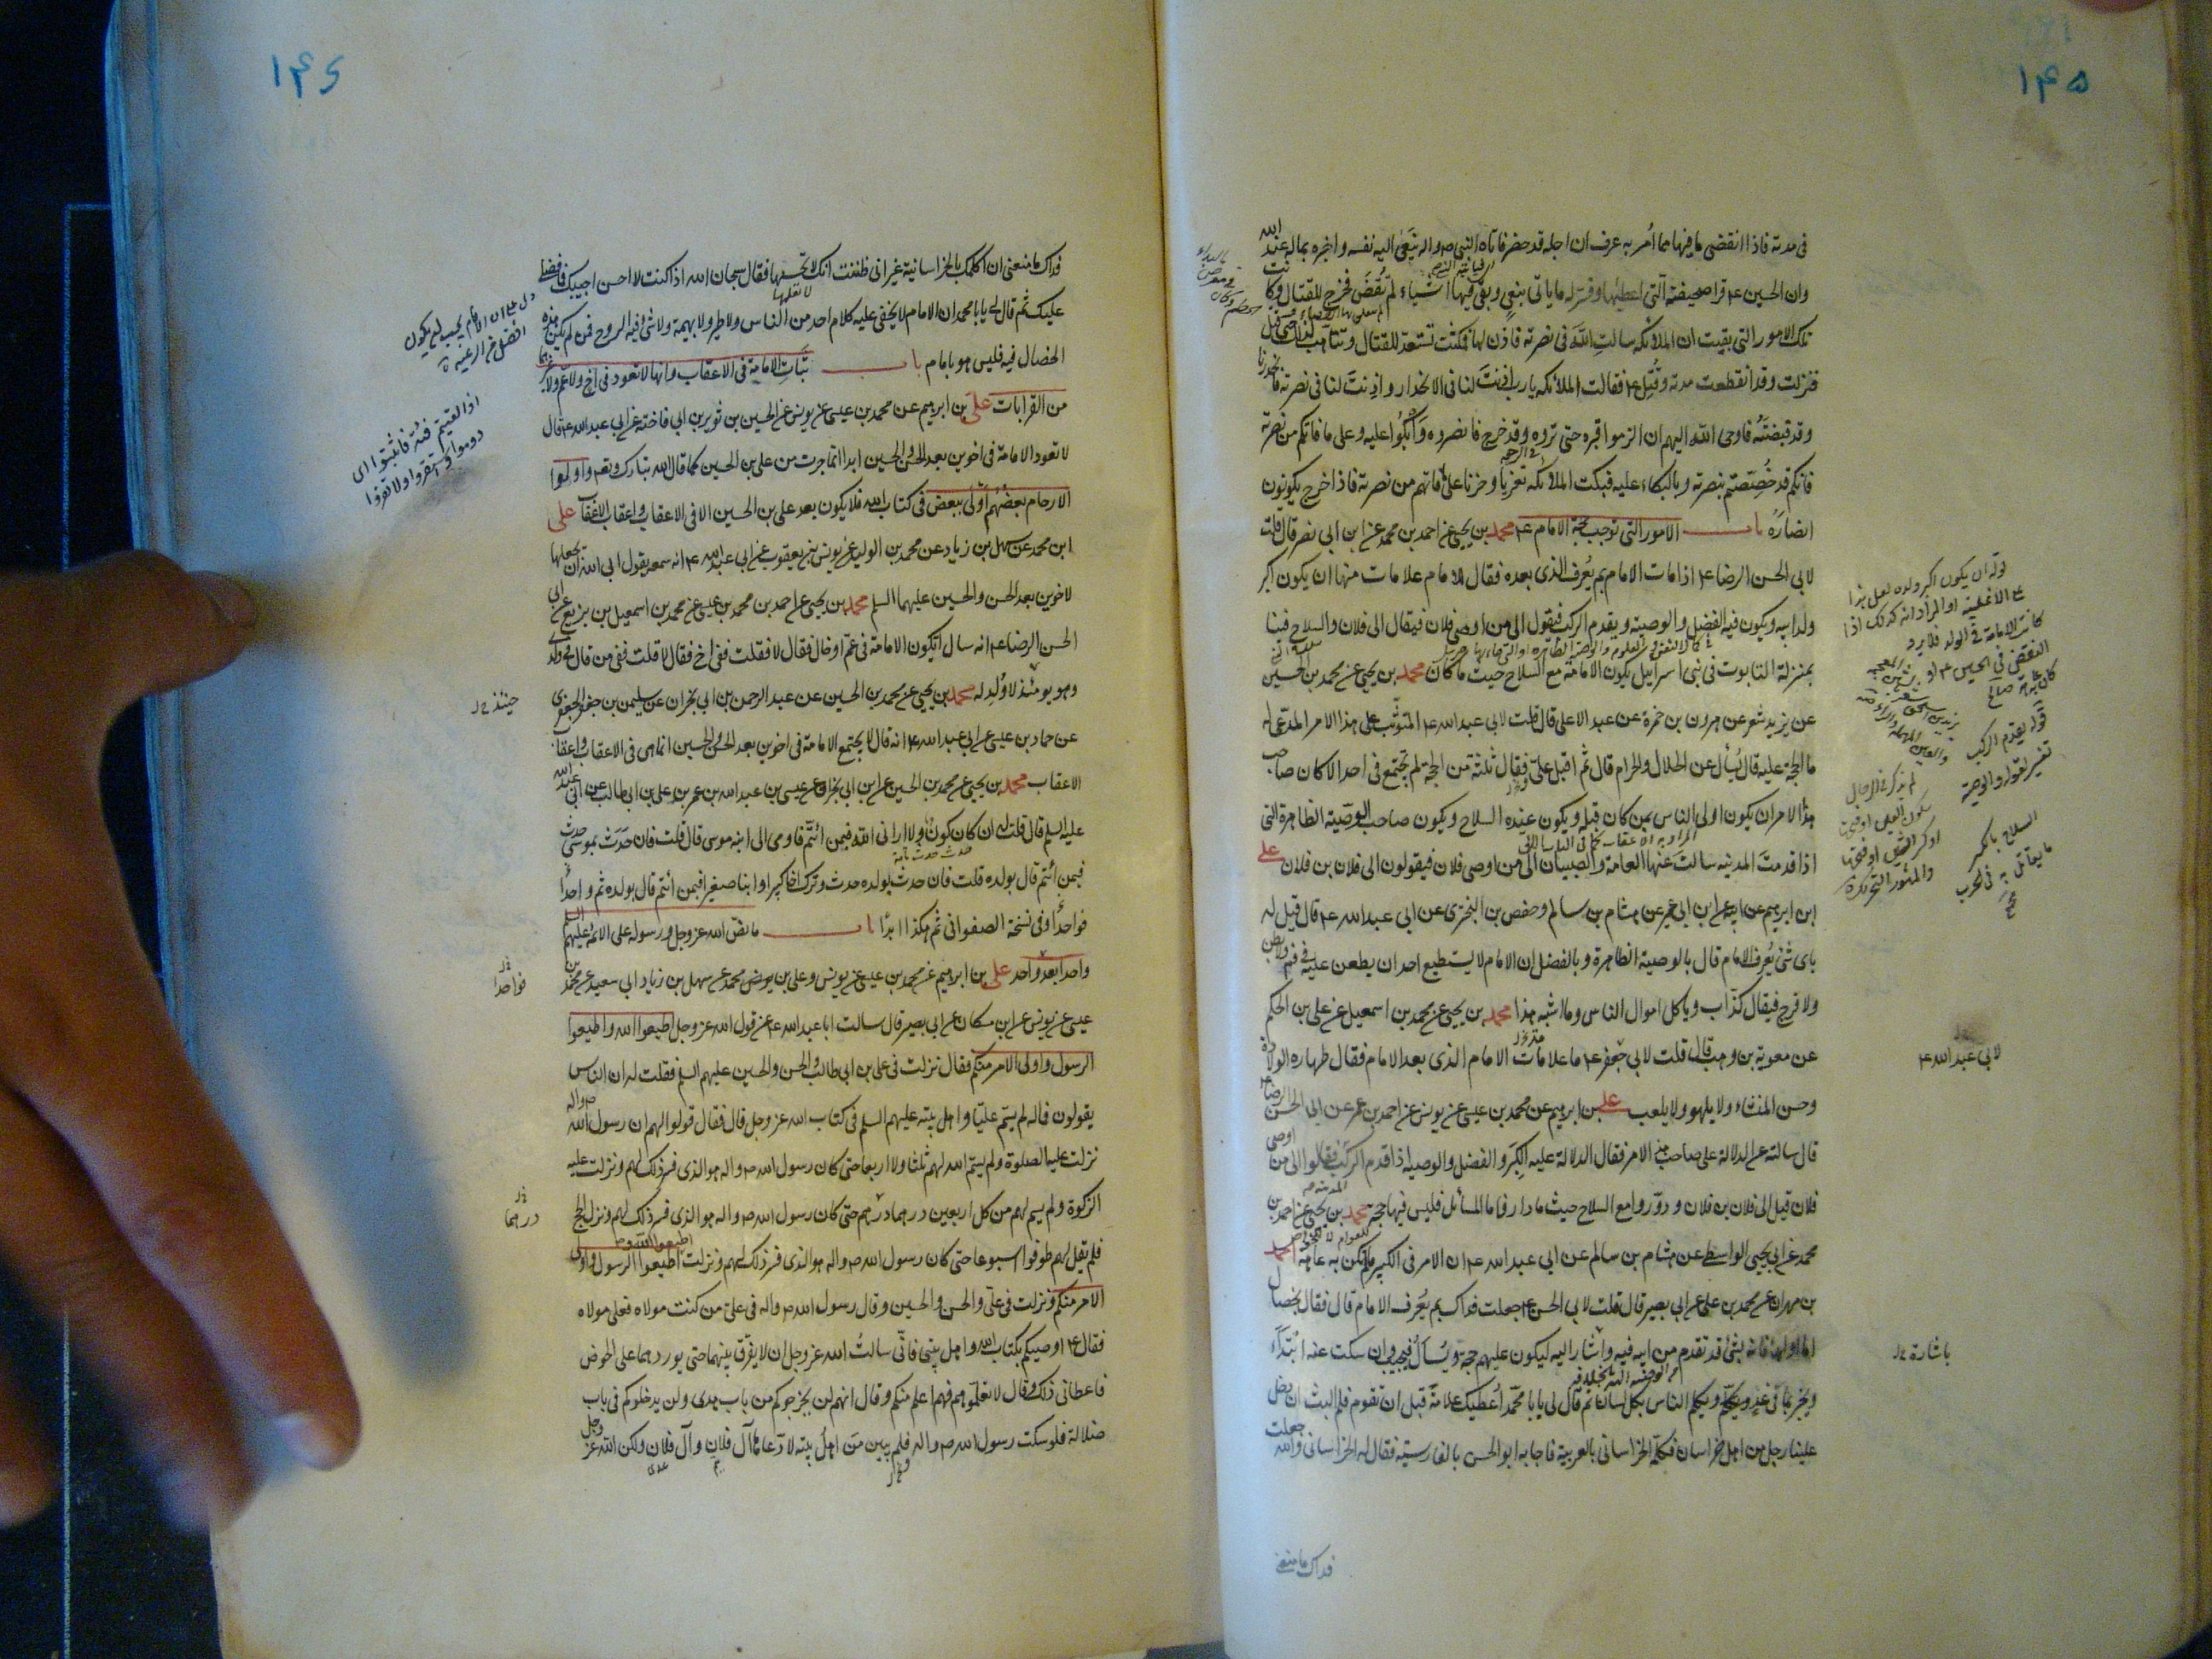 ١۴۵
فى مدته فاذا انقضى ما فيها مما أمر به عرف ان اجله قد حضر فاتاه النبى ص واله ينعى اليه نفسه واخبره بماله عند الله
وان الحسين ع قرا صحيفته التى اعطيها وفسر له ما ياتى بنعى وبقى فيها اشياء لم تُقضَ فخرج للقتال وكانت
تلك الامور التى بقيت ان الملائكة سالتِ اللَّهَ فى نصرته فاذن لها فمكثت تستعد للقتال وتتاهب لذلك حتى قتل
فنزلت وقد انقطعت مدته وقُتِل ع فقالت الملائكه يا رب اذنتَ لنا فى الانحدار واذِنتَ لنا فى نصرته فانحدرنا
وقد قبضتَهُ فاوحى الله اليهم ان الزموا قبره حتى تروه وقد خرج فانصروه وَابكُوا عليه وعلى ما فاتكم من نصرته
فانكم قد خُصِّصتم بنصرته وبالبكاء عليه فبكت الملائكه تعزيا وحزنا على ما فاتهم من نصرته فاذا خرج يكونون
انصارَهُ باب الامور التى توجب حجة الامام ع محمد بن يحيى عن احمد بن محمد عن ابن ابى نصر قال قلت
لابى الحسن الرضا ع اذا مات الامام بم يُعرف الذى بعده فقال للامام علامات منها ان يكون اكبر
ولد ابيه ويكون فيه الفضل والوصية ويقدم الركب فيقول الى من اوصى فلان فيقال الى فلان والسلاح فينا
بمنزلة التابوت فى بنى اسرايل تكون الامامة مع السلاح حيث ما كان محمد بن يحيى عن محمد بن الحسين
عن يزيد شعر عن هرون بن حمزة عن عبد الاعلى قال قلت لابى عبد الله ع المتوثّب على هذا الامر المدعى له
ما الحجة عليه قال يُسأل عن الحلال والحرام قال ثم اقبل علىّ فقال ثلثة من الحجة لم تجتمع فى احد الا كان صاحب
هذا الامر ان يكون اولى الناس بمن كان قبله ويكون عنده السلاح ويكون صاحب الوصيّة الظاهرة التى
اذا قدمتَ المدينه سالتَ عنها العامة والصبيان الى من اوصى فلان فيقولون الى فلان بن فلان على
ابن ابرهيم عن ابيه عن ابن ابى عمير عن هشام بن سالم وحفص بن البخترى عن ابى عبد الله ع قال قيل له
باى شئ يُعرف الامام قال بالوصية الظاهرة وبالفضل ان الامام لا يستطيع احد ان يطعن عليه فى فم ولا بطن
ولا فرج فيقال كذّاب وياكل اموال الناس وما اشبه هذا محمد بن يحيى عن محمد بن اسمعيل عن على بن الحكم
عن معوية بن وهب قال قلت لابى جعفر ع ما علامات الامام الذى بعد الامام فقال طهاره الولادة
وحسن المنشاء ولا يلهو ولا يلعب على بن ابرهيم عن محمد بن عيسى عن يونس عن احمد بن عمر عن ابى الحسن الرضا ع
قال سالته عن الدلالة على صاحب هذا الامر فقال الدلالة عليه الكِبَر والفضل والوصية اذا قدم الركب فقالوا الى من اوصى
فلان قيل الى فلان بن فلان ودوّروا مع السلاح حيث ما دار فاما المسائل فليس فيها حجة محمد بن يحيى عن احمد بن
محمد عن ابى يحيى الواسطى عن هشام بن سالم عن ابى عبد الله ع ان الامر فى الكبير ما لم تكن به عاهة احمد
بن مهران عن محمد بن على عن ابى بصير قال قلت لابى الحسن ع جعلت فداك بم يُعرف الامام قال فقال بخصال
اما اولها فانه بشئ قد تقدم من ابيه فيه واشار اليه ليكون عليهم حجة ويُسأل فيجيب وان سكت عنه ابتدأ
ويخبر بما فى غد ويكلم الناس بكل لسان ثم قال لى يابا محمد اُعطيك علامة قبل ان تقوم فلم البث ان دخل
علينا رجل من اهل خراسان فكلّمه الخراسانى بالعربية فاجابه ابو الحسن بالفارسيّة فقال له الخراسانى والله جعلت
فداك ما منعنى
قوله ان يكون اكبر ولده لعل هذا
قوله يقدم الركب
تفسير لقوله والوصية
السلاح بالكسر
ما يقاتل به فى الحرب
لابى عبد الله ع
باشارة خ ل
١۴۶
فداك ما منعنى ان اكلمك بالخراسانية غير انى ظننت انك لا تحسنها فقال سبحان الله اذا كنت لا احسن اجيبك فما فضلى
عليك ثم قال لى يابا محمد ان الامام لا يخفى عليه كلام احد من الناس ولا طير ولا بهيمة ولا شئ فيه الروح فمن لم يكن هذه
الخصال فيه فليس هو بامام باب ثَباتِ الامامة فى الاعقاب وانها لا تعود فى اخ ولا عم ولا غيرهما
من القرابات على بن ابرهيم عن محمد بن عيسى عن يونس عن الحسين بن ثوير بن ابى فاخته عن ابى عبد الله ع قال
لا تعود الامامة فى اخوين بعد الحسن والحسين ابدا انما جرت من على بن الحسين كما قال الله تبارك وتعالى واولوا
الارحام بعضُهُم أولَى ببعض فى كتاب الله فلا يكون بعد على بن الحسين الا فى الاعقاب واعقاب الاعقاب على
ابن محمد عن سهل بن زياد عن محمد بن الوليد عن يونس بن يعقوب عن ابى عبد الله ع انه سمعه يقول ابى الله ان يجعلها
لاخوين بعد الحسن والحسين عليهما السلم محمد بن يحيى عن احمد بن محمد بن عيسى عن محمد بن اسمعيل بن بزيع عن ابى
الحسن الرضا ع انه سال اتكون الامامة فى عمّ او خال فقال لا فقلت ففى اخ فقال لا قلت ففى من قال فى ولدى
وهو يومئذ لا وُلِد له محمد بن يحيى عن محمد بن الحسين عن عبد الرحمن بن ابى نجران عن سليمن بن جعفر الجعفرى
عن حماد بن عيسى عن ابى عبد الله ع انه قال لا يجتمع الامامة فى اخوين بعد الحسن والحسين انما هى فى الاعقاب واعقاب
الاعقاب محمد بن يحيى عن محمد بن الحسين عن ابن ابى نجران عن عيسى بن عبد الله بن عمر بن على بن ابى طالب عن ابى عبد الله
عليه السلم قال قلت له ان كان كونٌ ولا ارانى الله فبمن ائتمّ فاومى الى ابنه موسى قال قلت فان حَدَث بموسى حدث
فبمن أئتم قال بولده قلت فان حدث بولده حدث وترك اخا كبيرا وابنا صغيرا فبمن ائتم قال بولده ثم واحدًا
فواحدًا وفى نسخة الصفوانى ثم هكذا ابدًا باب ما نص الله عز وجل ورسوله على الائمة عليهم السلم
واحدا بعد واحد على بن ابرهيم عن محمد بن عيسى عن يونس وعلى بن محمد عن سهل بن زياد ابى سعيد عن محمد بن
عيسى عن يونس عن ابن مسكان عن ابى بصير قال سالت ابا عبد الله ع عن قول الله عز وجل اطيعوا الله واطيعوا
الرسول واولى الامر منكم فقال نزلت فى على بن ابى طالب والحسن والحسين عليهم السلم فقلت له ان الناس
يقولون فما له لم يسَمّ عليّا واهل بيته عليهم السلم فى كتاب الله عز وجل قال فقال قولوا لهم ان رسول الله ص واله
نزلت عليه الصلوة ولم يسمّ الله لهم ثلثا ولا اربعا حتى كان رسول الله ص واله هو الذى فسر ذلك لهم ونزلت عليه
الزكوة ولم يسم لهم من كل اربعين درهما درهم حتى كان رسول الله ص واله هو الذى فسر ذلك لهم ونزل الحج
فلم يقل لهم طوفوا اسبوعا حتى كان رسول الله ص واله هو الذى فسر ذلك لهم ونزلت اطيعوا الله واطيعوا الرسول واولى
الامر منكم ونزلت فى علىّ والحسن والحسين وقال رسول الله ص واله فى علىّ من كنت مولاه فعلى مولاه
فقال ع اوصيكم بكتاب الله واهل بيتى فانّى سالتُ الله عز وجل ان لا يفرّق بينهما حتى يوردهما على الحوض
فاعطانى ذلك وقال لا تعلّموهم فهم اعلم منكم وقال انهم لن يخرجوكم من باب هدى ولن يدخلوكم فى باب
ضلالة فلو سكت رسول الله ص واله فلم يبين مَن اهلُ بيته لادّعاها آل فلان وآل فلان ولكن الله عز وجل
افضل من الرعية
اذا لقيتم فئة فاثبتوا اى
دوموا واستقروا ولا تفروا
حينئذ خ ل
فواحدا
درهما